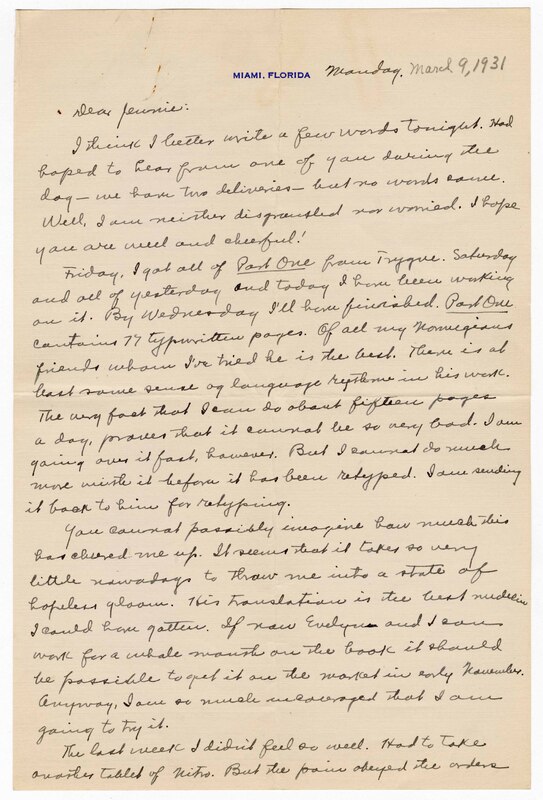 MIAMI, FLORIDA Monday, March 9, 1931
Dear Jennie:
I think I better write a few words tonight. Had
hoped to hear from one of you during the
day - we have two deliveries - but no words came.
Well, I am neither disgrunsted nor worried. I hope
you are well and cheerful!
Friday, I got all of Part One from Trygve. Saturday
and all of yesterday and today I have been working
on it. By Wednesday I'll have finished. Part One
contains 77 typwritten pages. Of all my Norwegians
friends whom I've tried he is the best. There is at
least some sense og language rythme in his work.
The very fact that I can do about fifteen pages
a day, proves that it cannot be so very bad. I am
going over it fast, however. But I cannot do much
more with it before it has been retyped. I am sending
it back to him for retyping.
You cannot possibly imagine how much this
has cheered me up. It seems that it takes so very
little nowadays to throw me into a state of
hopeless gloom. His translation is the best medicin
I could have gotten. If now Evelyn and I can
work for a whole month on the book it should
be possible to get it on the market in early November.
Anyway, I am so much incouraged that I am
going to try it.
The last week I didn't feel so well. Had to take
another tablet of Nitro. But the pain obeyed the orders